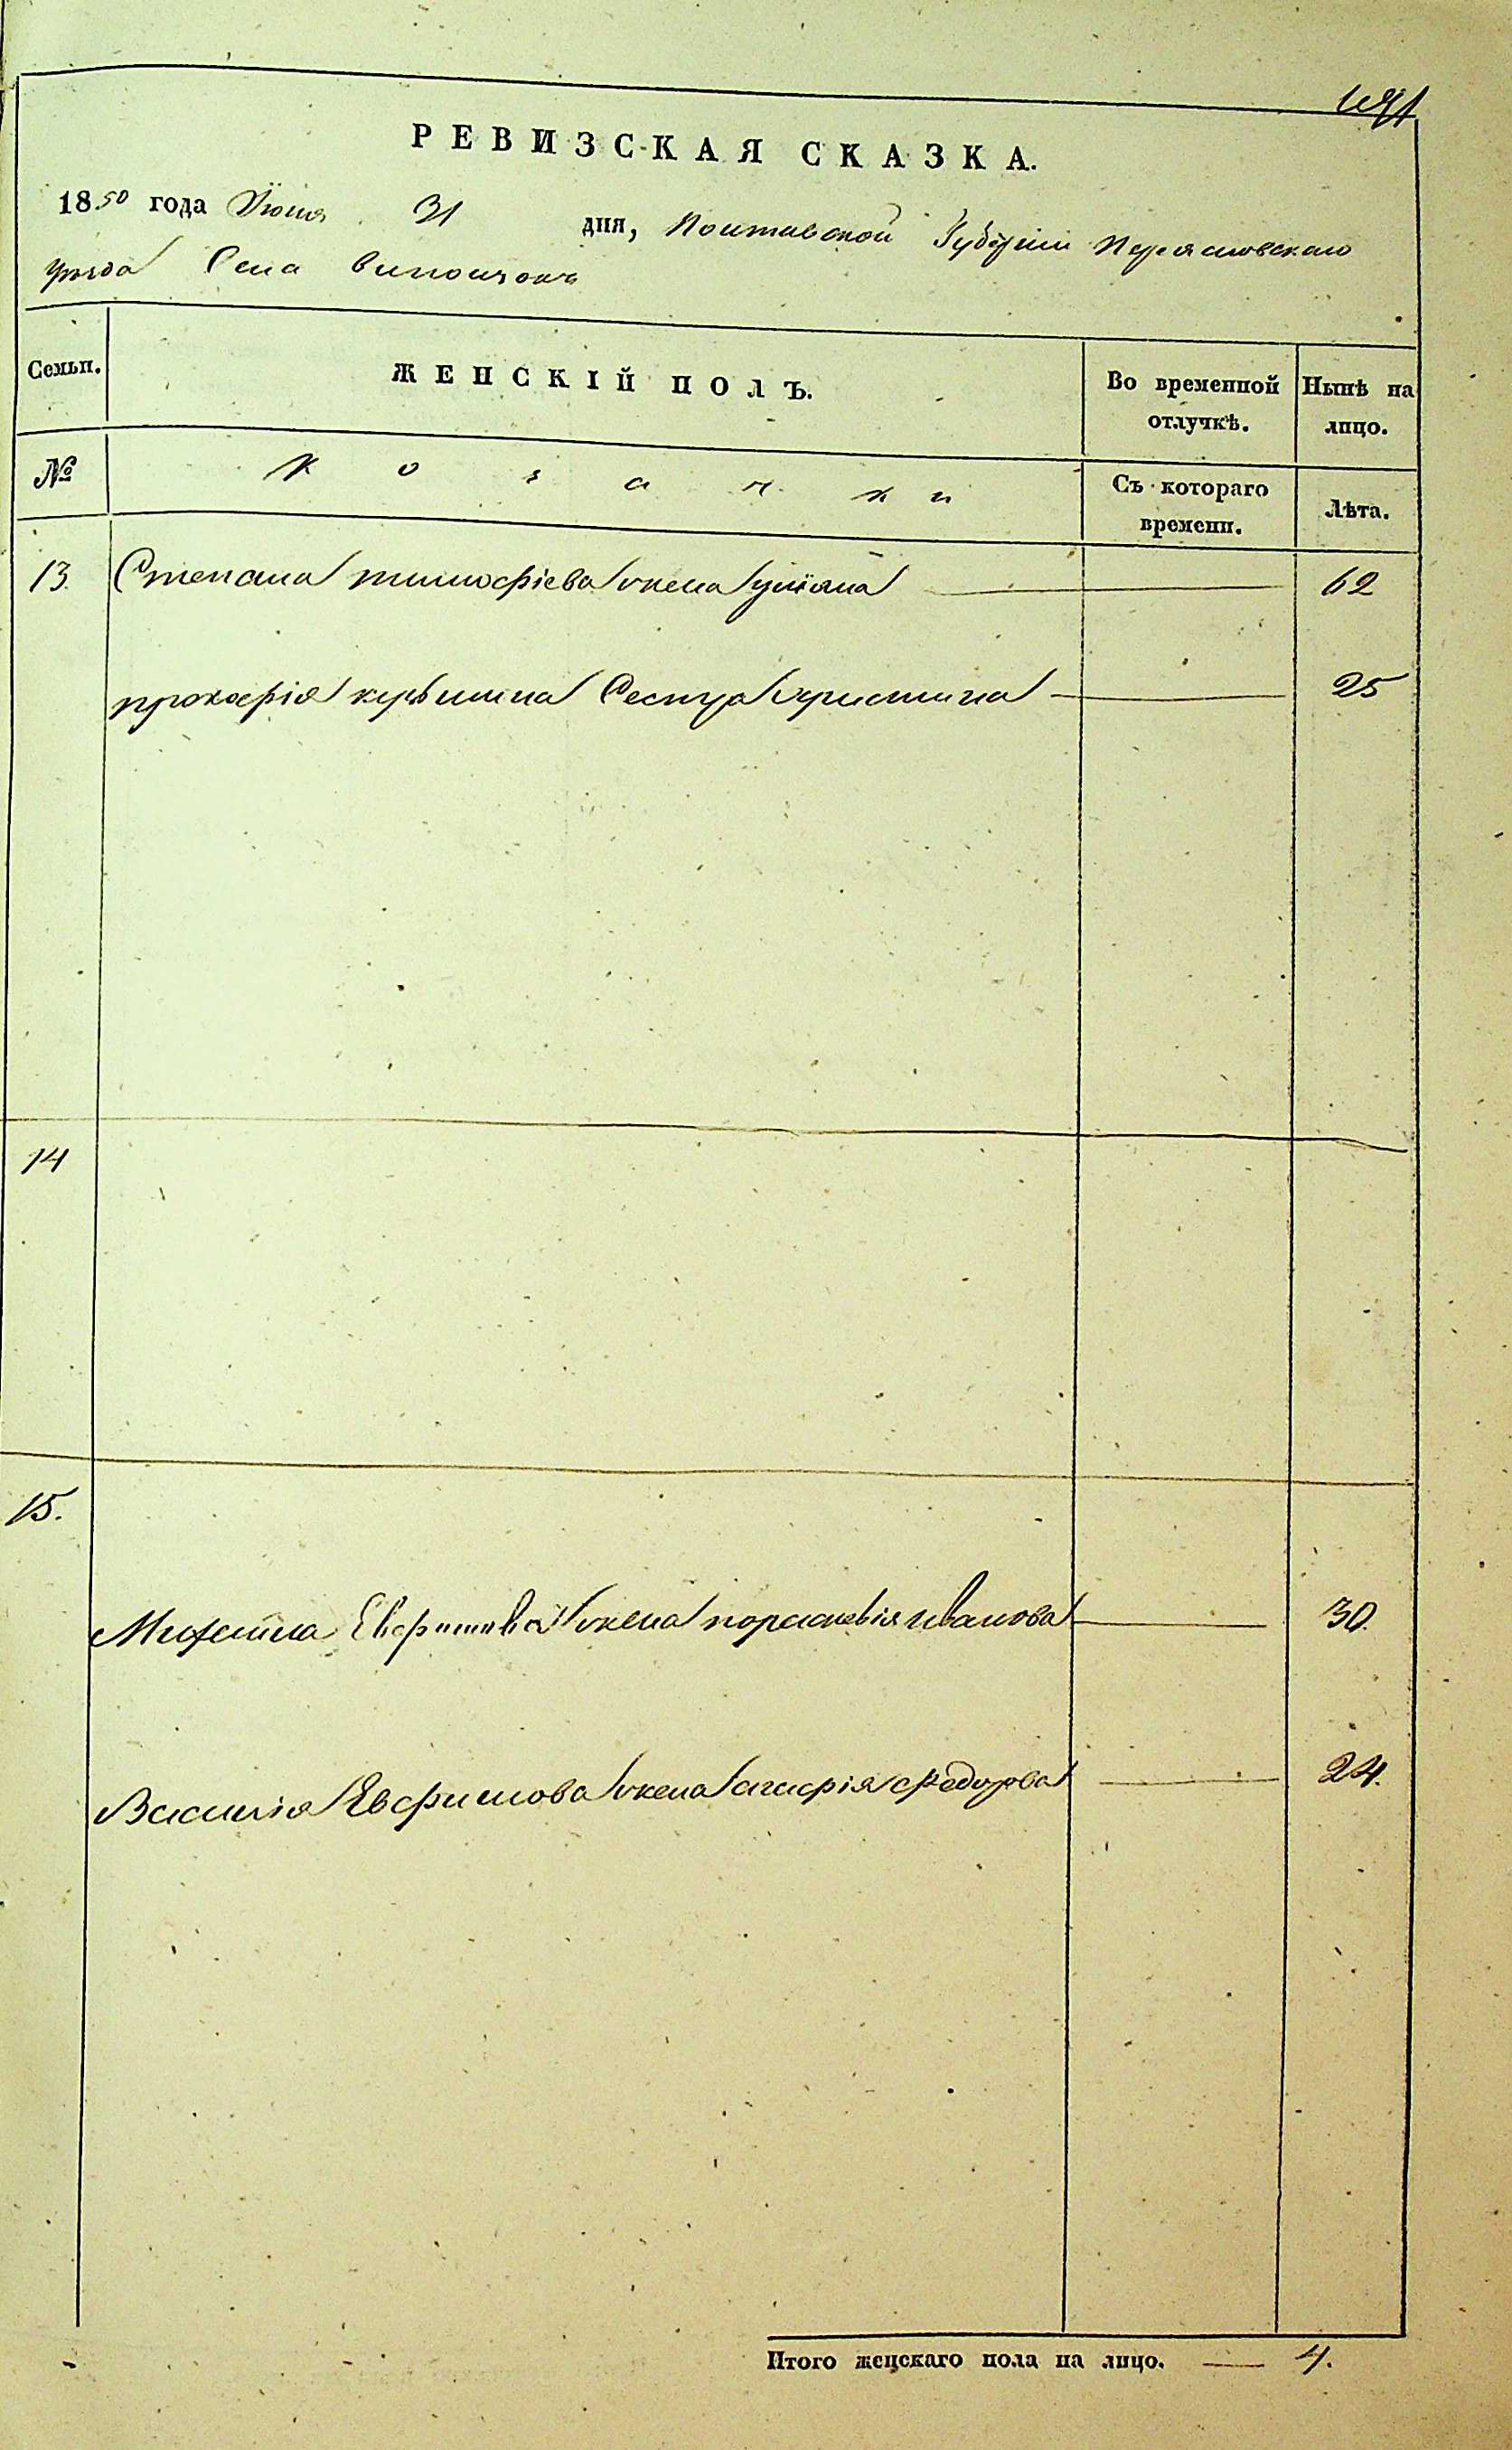 РЕВИЗСКАЯ СКАЗКА.
1850 года Июня 31 дня, Полтавской Губернии Переясловскаго
уезда Села
Семьи. ЖЕНСКІЙ ПОЛЪ. Во временной отлучкѣ. Нынѣ на лицо.
№ Козачки Съ котораго времени. Лѣта.
13. Степана тимофіева жена уліяна 62
прокофія Сестра христина 25
14
15.
Евфимова жена пораскевія иванова 30.
Василія Евфимова жена агафія федорова 24.
Итого женскаго пола на лицо. 4.